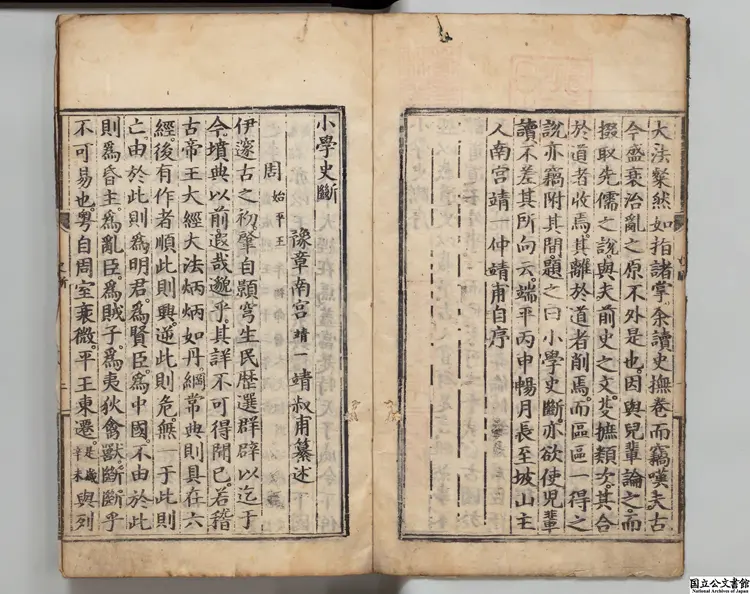 大法粲然如指諸掌余讀史撫卷而竊嘆夫古
今盛衰治亂之原不外是也因與兒輩論之而
掇取先儒之說與夫前史之文芟摭類次其合
於道者收焉其離於道者削焉而區區一得之
說亦竊附其間題之曰小學史斷亦欲使兒輩
讀不差其所向云端平丙申暢月長至坡山主
人南宮靖一仲靖甫自序
小學史斷
豫章南宮靖一靖叔甫纂述
周始平王
伊邃古之初肇自顥穹生民歷選群辟以迄于
今墳典以前遐哉邈乎其詳不可得聞已若稽
古帝王大經大法炳炳如丹綱常典則具在六
經後有作者順此則興逆此則危無一于此則
亡由於此則爲明君爲賢臣爲中國不由於此
則爲昏主爲亂臣爲賊子爲夷狄禽獸斷斷乎
不可易也粵自周室衰微平王東遷是歲辛未與列
国立公文書館
National Archives of Japan